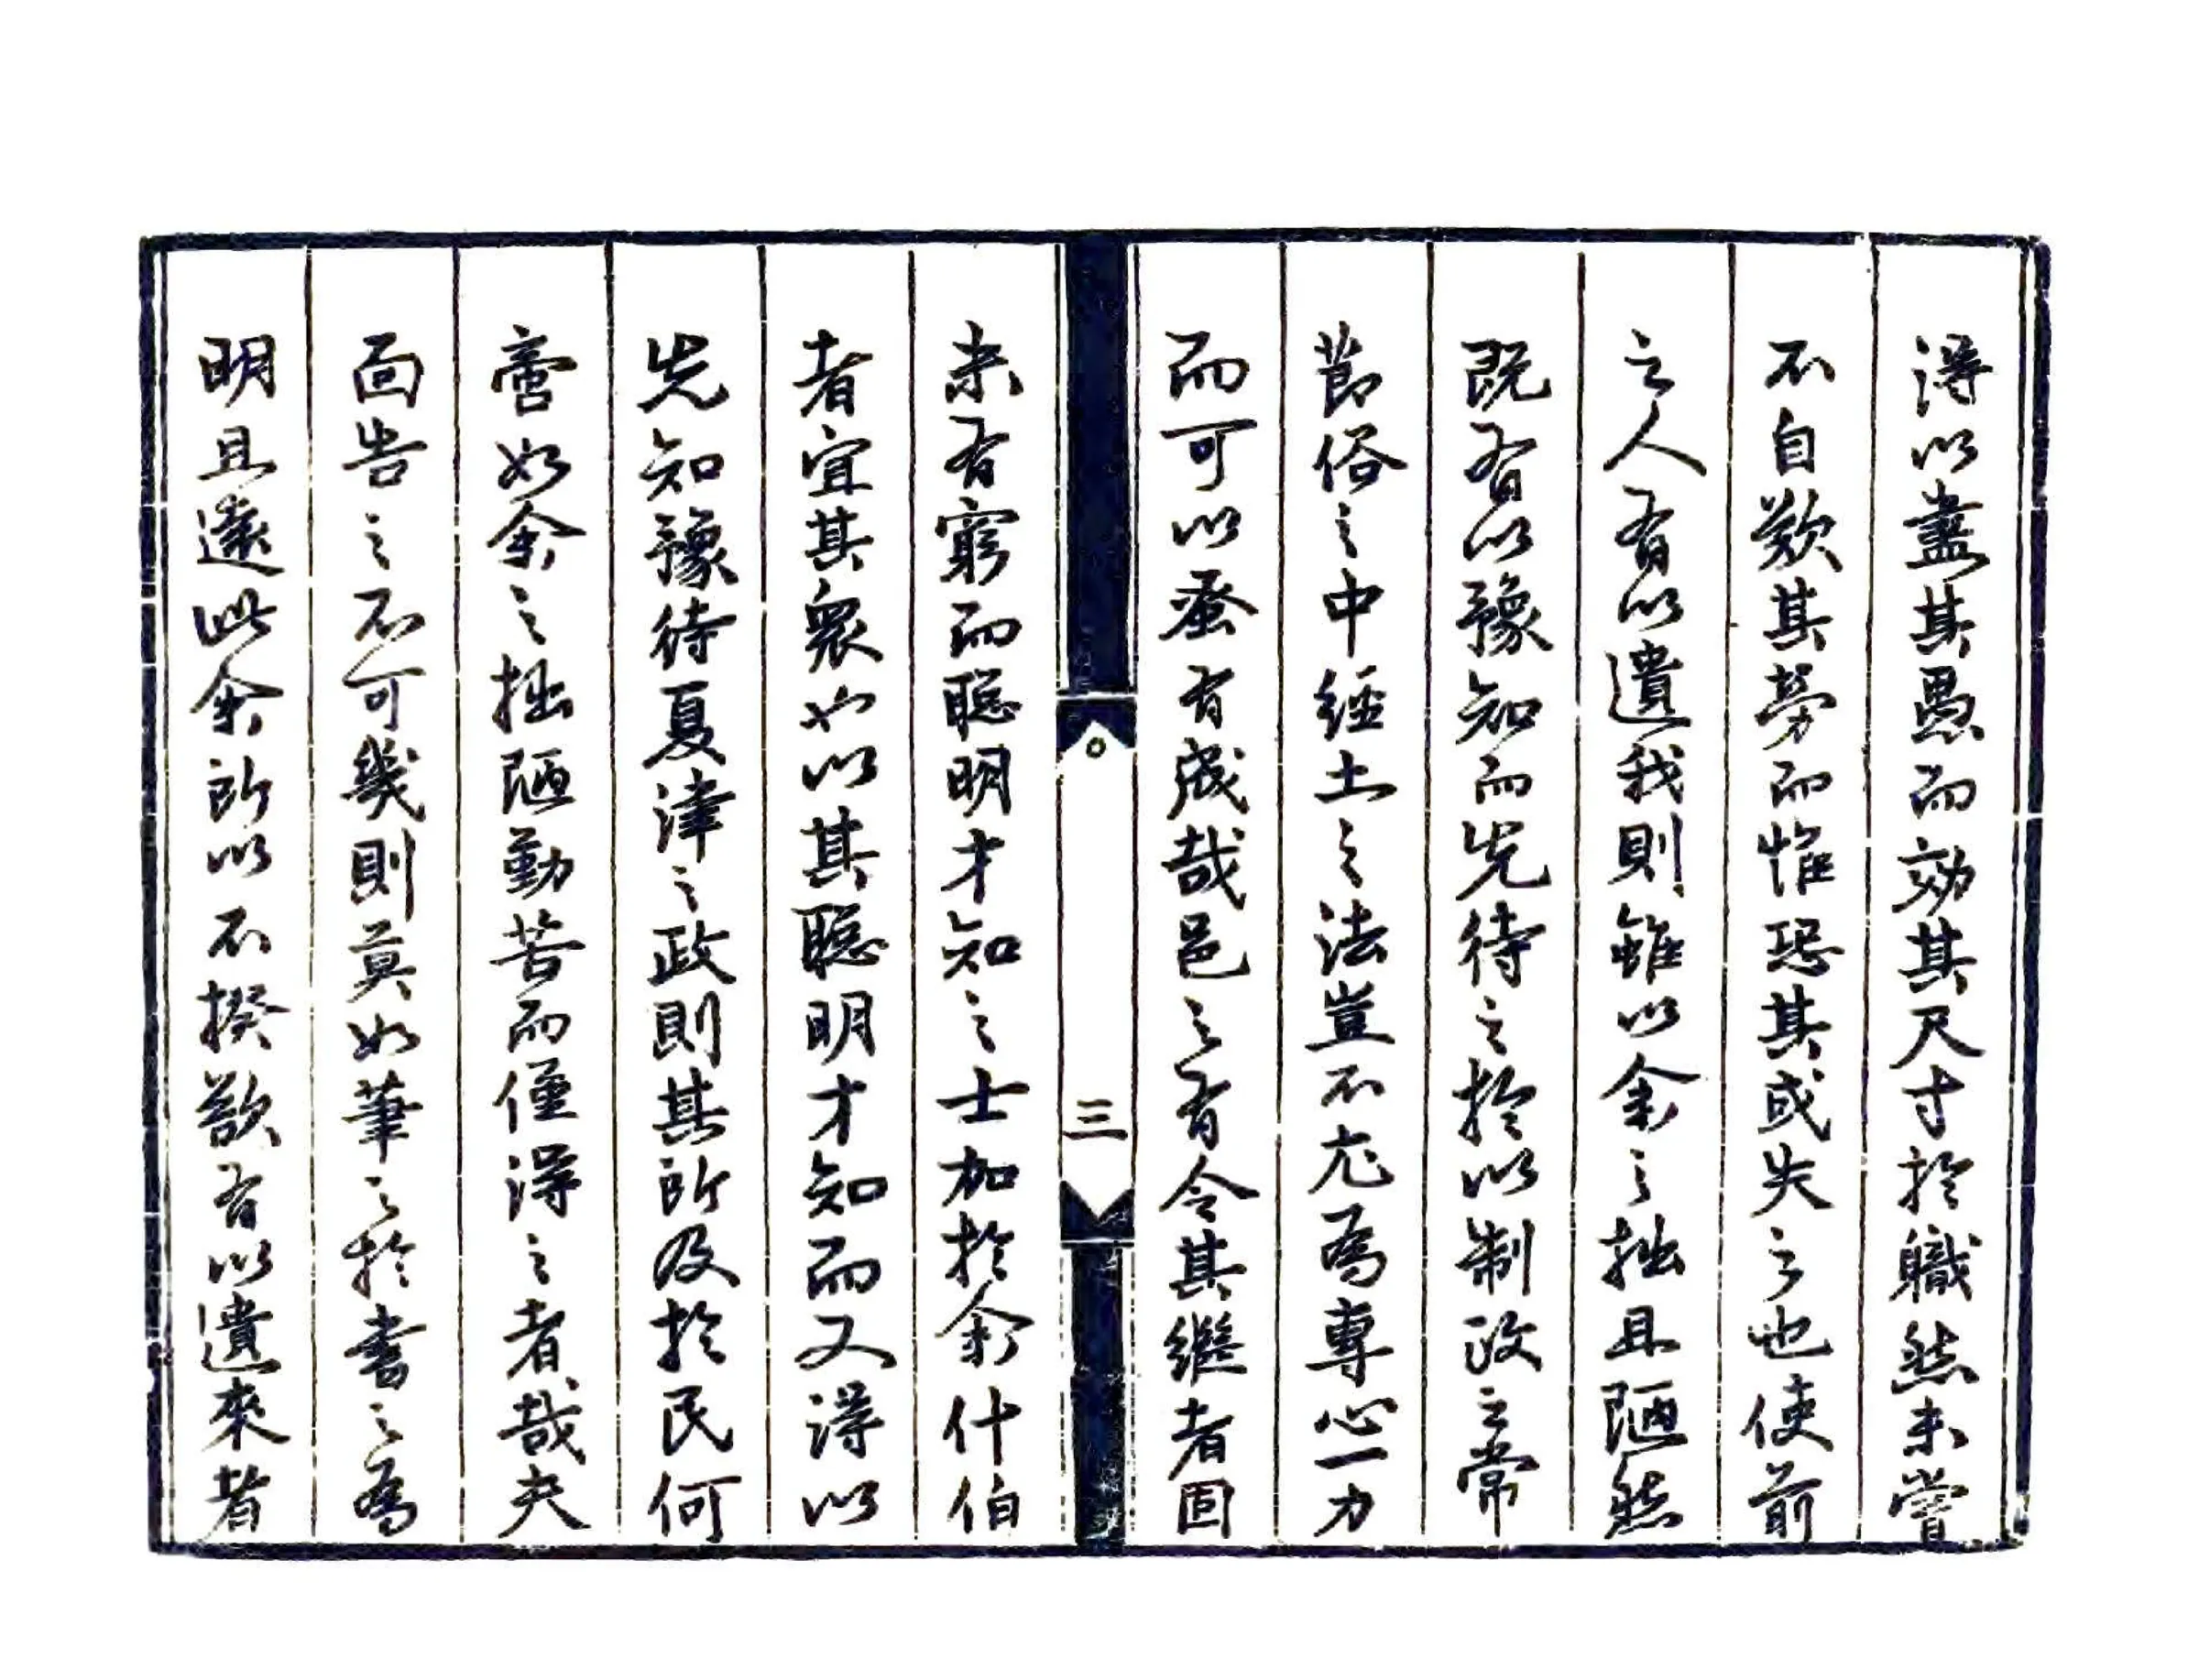 得以盡其愚而効其尺寸於職然未嘗
不自歎其勞而惟恐其或失之也使前
之人有以遺我則雖以余之拙且陋然
既有以豫知而先待之於以制政之常
節俗之中經土之法豈不尤為專心一力
而可以蚤有成哉邑之有令其繼者固
三
未有窮而聰明才知之士加於余什伯
者宜其眾也以其聰明才知而又得以
先知豫待夏津之政則其所及於民何
啻如余之拙陋勤苦而僅得之者哉夫
面告之不可幾則莫如筆之於書之為
明且遠此余所以不揆欲有以遺來者